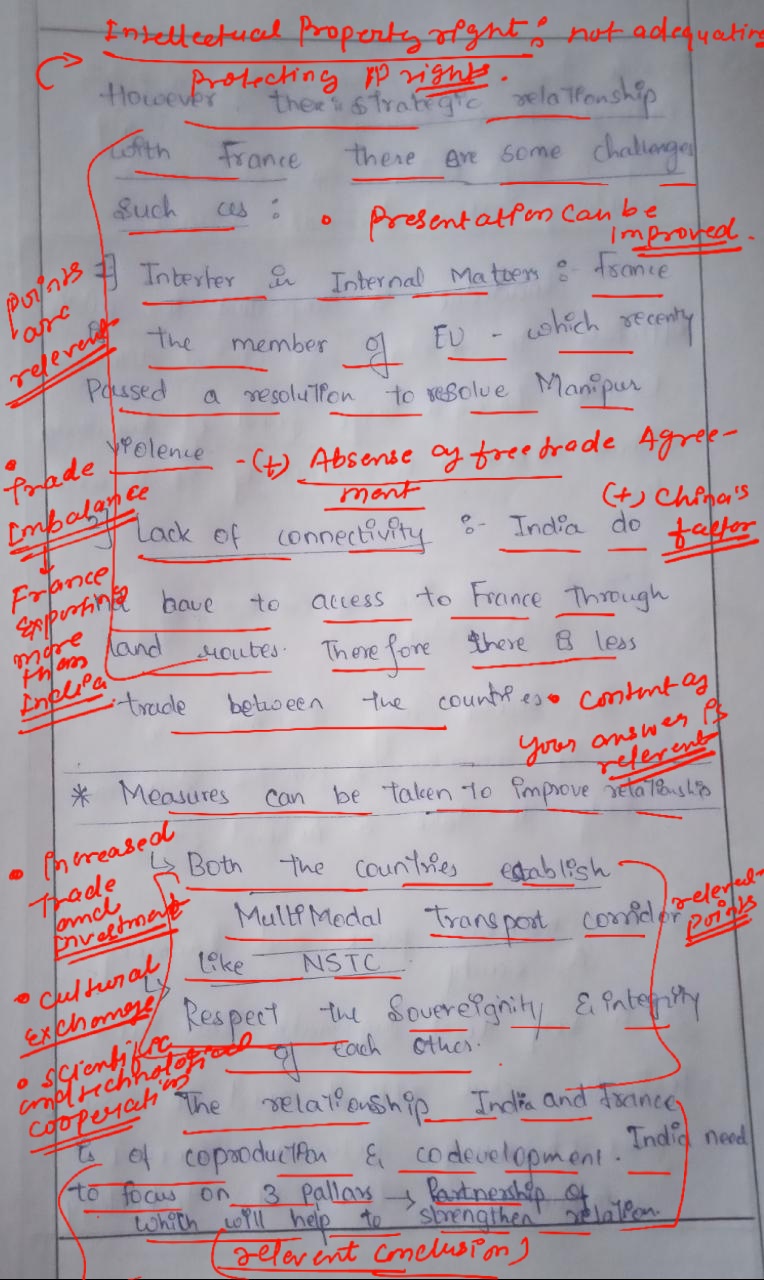 Intellectual Property right : not adequating
Protecting IP rights.
However there is strategic relationship
with France there are some challenges
such as :
• Presentation can be
improved.
Points
are
relevent
1] Interfer in Internal Matters :- France
the member of EU - which recenty
Passed a resolution to resolve Manipur
violence - (+) Absense of free trade Agree-
ment
• Trade
Imbalance
↓
France
exporting
more
than
India
(+) China's
factor
2] Lack of connectivity :- India do
not have to access to France through
land routes. Therefore there is less
trade between the countries
• Content of
your answer is
relevent
* Measures can be taken to improve relationship
• Increased
Trade
and
investment
• Cultural
exchange
• Scientific
and technological
cooperation
↳ Both the countries establish
MultiModal Transport corridor
like NSTC
relevent
points
↳ Respect the Sovereignity & integrity
of each other.
The relationship India and France
is of coproduction & codevelopment. India need
to focus on 3 pallars → Partnership of
which will help to strengthen relation.
(relevent conclusion)